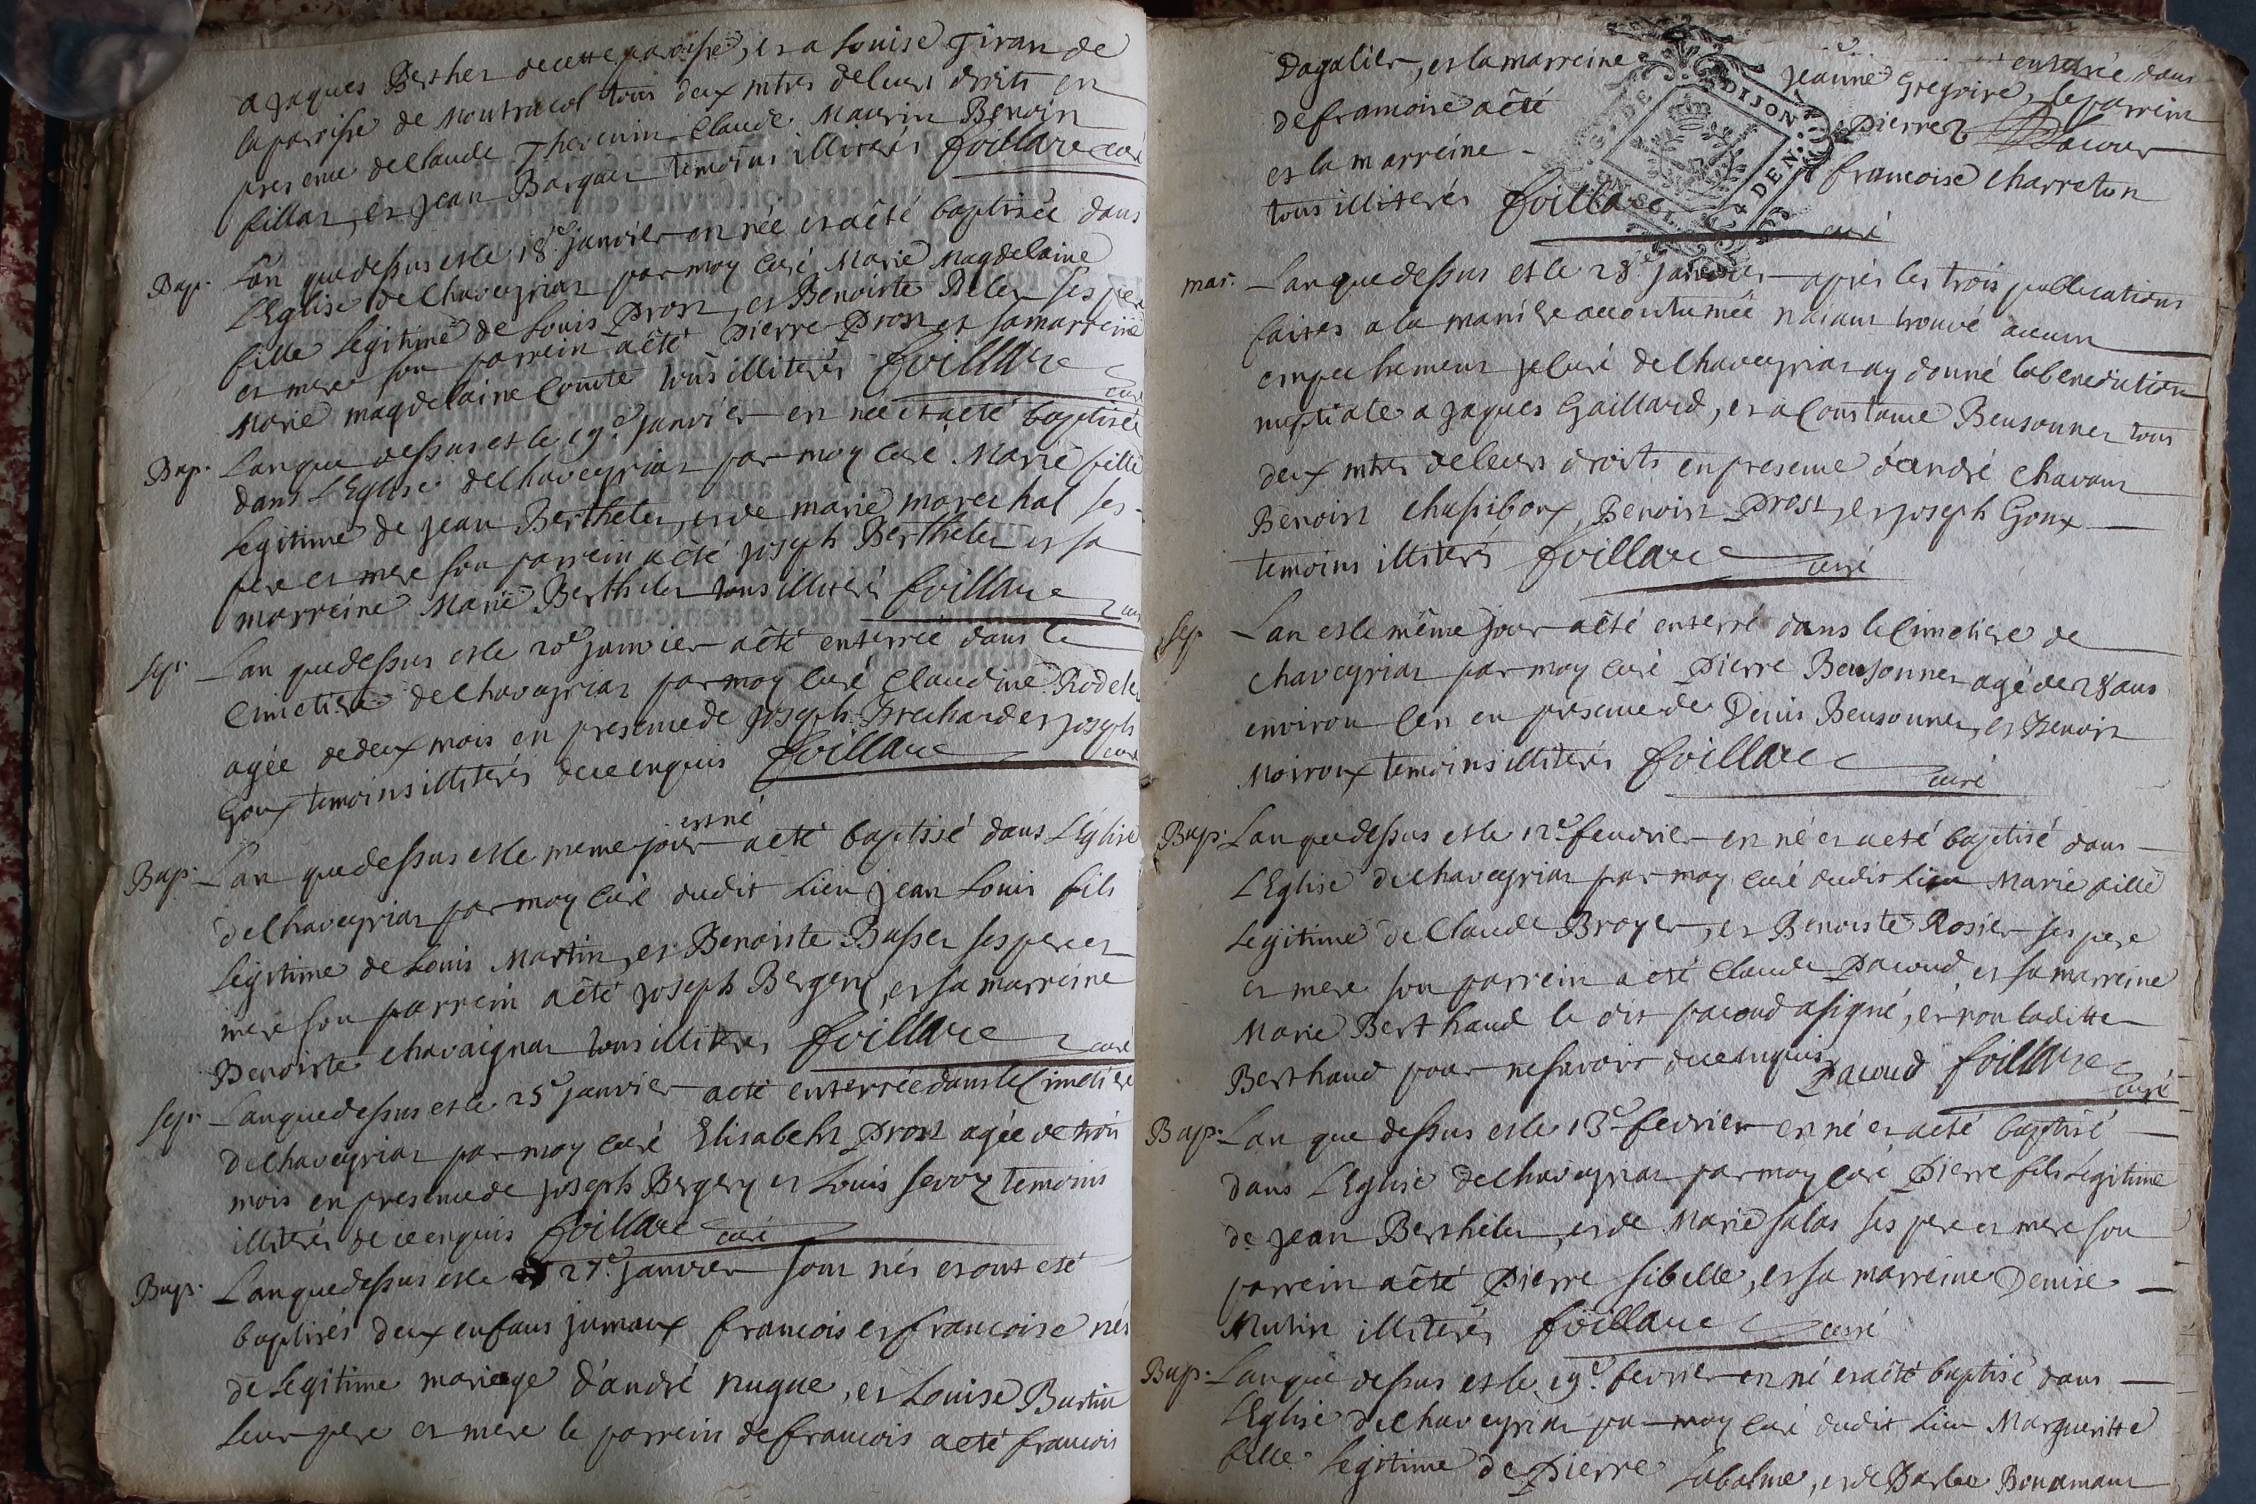 a jaques Berthet de cette paroisse, et a Louise Giran de
la paroisse de Montracol tous deux mtres de leurs droits en
presence de Claude Thevenin Claude Maurin Benoin
fillar, et jean Barquet temoins illiterés foillare curé
Bap. L'an que dessus et le 18e janvier est née et a èté baptisée dans
L'Eglise de Chaveyriat par moy curé Marie Magdelaine
fille Legitime de Louis Prost et Benoiste Belet ses pere
et mere son parrein a èté Pierre Prost et sa marreine
Marie magdelaine Comte tous illiterés foillare curé
Bap. L'an que dessus et le 19e janvier est née et a eté baptisée
dans L'Eglise de Chaveyriat par moy curé Marie fille
Legitime de jean Berthelet, et de marie marechal ses
pere et mere son parrein a èté joseph Berthelet et sa
marreine Marie Berthelet tous illiteré foillare curé
Sep. L'an que dessus et le 20e janvier a èté enterrée dans le
Cimetiere de Chaveyriat par moy Curé Claudine Rodet
agée de deux mois en presence de joseph Brechard et joseph
Goux temoins illiterés de ce enquis foillare curé
est né
Bap. L'an que dessus et le meme jour a eté baptissé dans L'Eglise
de Chaveyriat par moy Curé dudit Lieu jean Louis fils
Legitime de Louis Martin, et Benoiste Busset ses pere et
mere son parrein a èté joseph Bergery, et sa marreine
Benoiste chavaignat tous illiteres foillare curé
Sep. L'an que dessus et le 25e janvier a eté enterrée dans le Cimetiere
de Chaveyriat par moy curé Elisabeth Prost agée de trois
mois en presence de joseph Bergery et Louis sevoz temoins
illiterés de ce enquis foillare curé
Bap. L'an que dessus et le 27e janvier sont nés et ont eté
baptisés deux enfans jumaux francois et francoise nés
de Legitime mariage d'andré nugue, et Louise Burtin
Leur pere et mere le parrein de francois a eté francois
Dagalier, et la marreine jeanne Gregoire, le parrein
de francoise a èté Pierre Pacour
et la marreine francoise charreton
tous illiterés foillare curé
DIJON
mar. L'an que dessus et le 28e janvier apres les trois publications
faites a la maniere accoutumée n'aiant trouvé aucun
empechement je curé de Chaveyriat ay donné la benediction
nuptiale a jaques Gaillard, et a Constance Beusonnet tous
deux mtres de leurs droits en presence d'andré chavant
Benoist chassiboux, Benoist Prost, et joseph Goux
temoins illiterés foillare curé
Sep. L'an et le même jour a èté enterré dans le Cimetiere de
chaveyriat par moy curé Pierre Beusonnet agé de 28 ans
environ en presence de Denis Beusonnet, et Benoist
Moiroux temoins illiterés foillare curé
Bap. L'an que dessus et le 12e feuvrier est né et a eté baptisé dans
L'Eglise de Chaveyriat par moy curé dudit Lieu Marie fille
Legitime de Claude Broyer, et Benoiste Rosier ses pere
et mere son parrein a eté Claude Pacoud et sa marreine
Marie Berthaud le dit pacoud a signé, et non laditte
Berthaud pour ne savoir de ce enquis Pacoud foillare curé
Bap. L'an que dessus et le 13e fevrier est né et a eté baptisé
dans L'Eglise de Chaveyriat par moy curé Pierre fils Legitime
de jean Berthelet, et de Marie salas ses pere et mere son
parrein a èté Pierre sibelle, et sa marreine Denise
Mutin illiterés foillare curé
Bap. L'an que dessus et le 19e fevrier est né et a èté baptisé dans
L'Eglise de Chaveyriat par moy curé dudit Lieu Margueritte
fille Legitime de Pierre Labalme, et de Barbe Bonamant